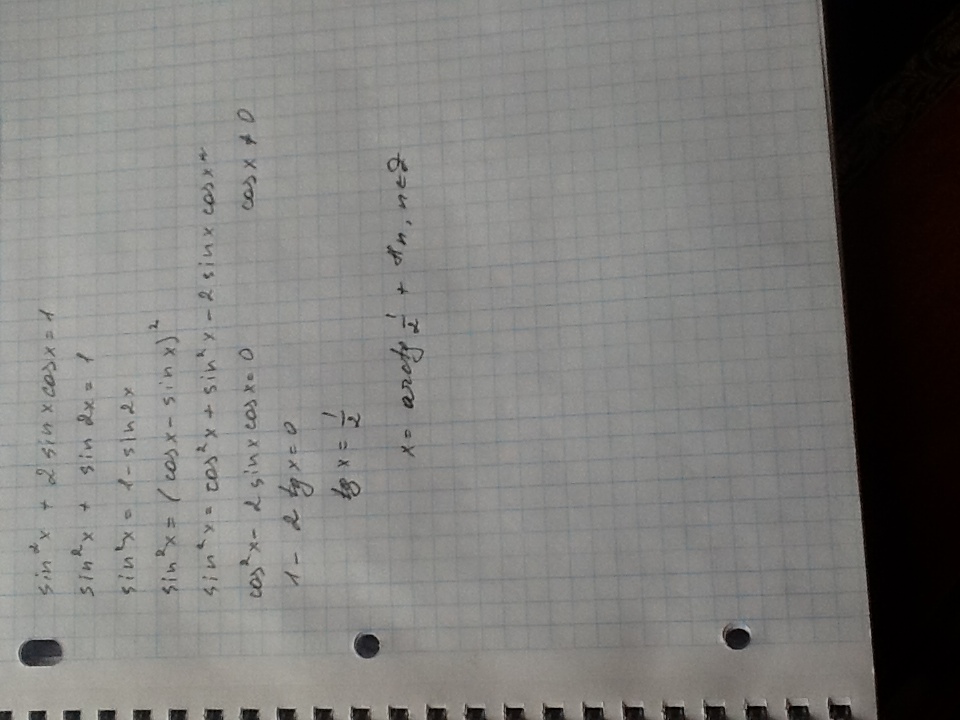 sin²x + 2 sin x cos x = 1
sin²x + sin 2x = 1
sin²x = 1 - sin 2x
sin²x = (cos x - sin x)²
sin²x = cos²x + sin²x - 2 sin x cos x
cos²x - 2 sin x cos x = 0 cos x ≠ 0
1 - 2 tg x = 0
tg x = 1/2
x = arctg 1/2 + πn, n∈Z